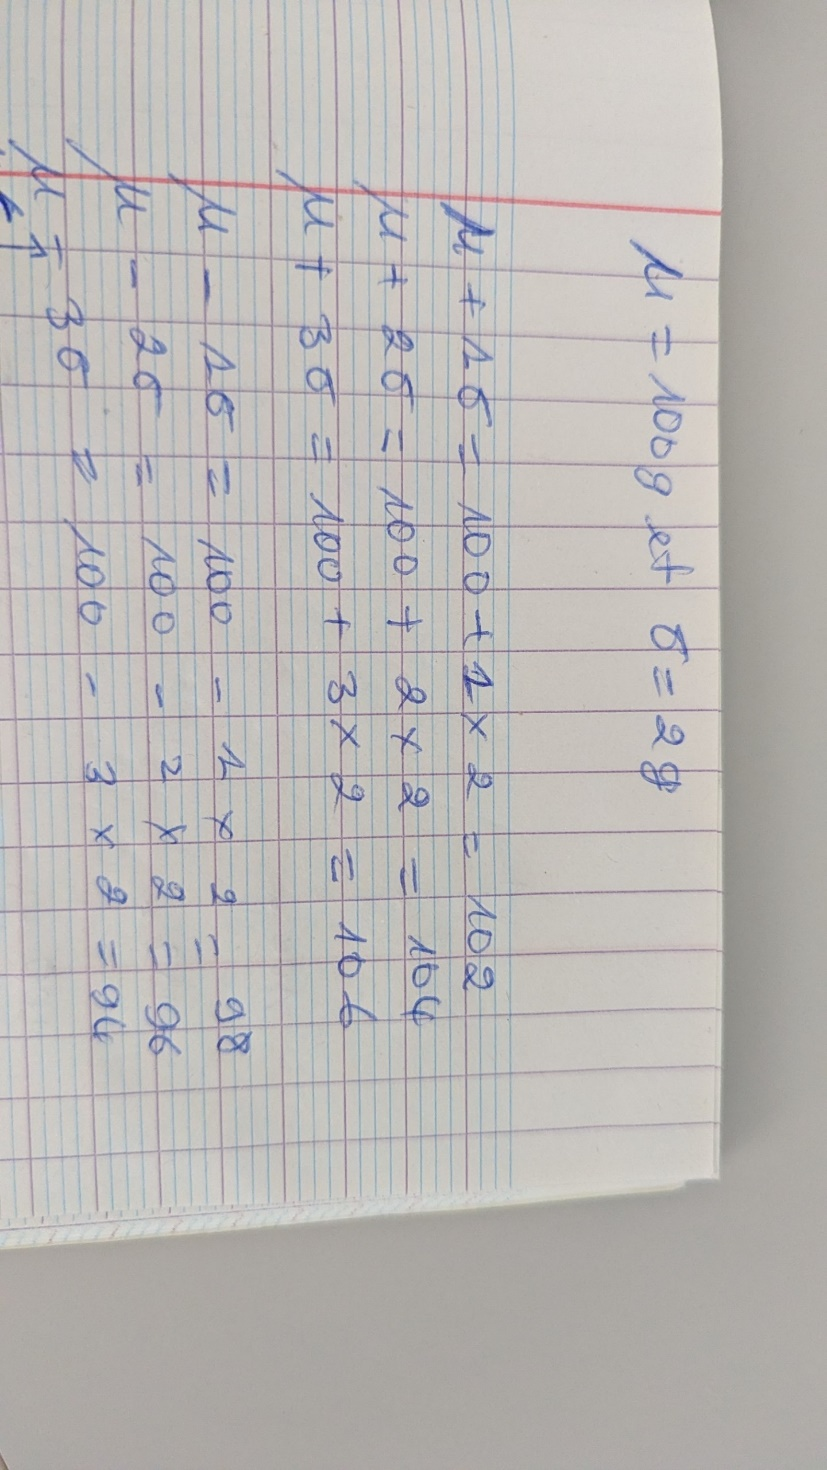 μ = 100g et σ = 2g
μ + 1σ = 100 + 1 × 2 = 102
μ + 2σ = 100 + 2 × 2 = 104
μ + 3σ = 100 + 3 × 2 = 106
μ - 1σ = 100 - 1 × 2 = 98
μ - 2σ = 100 - 2 × 2 = 96
μ - 3σ = 100 - 3 × 2 = 94